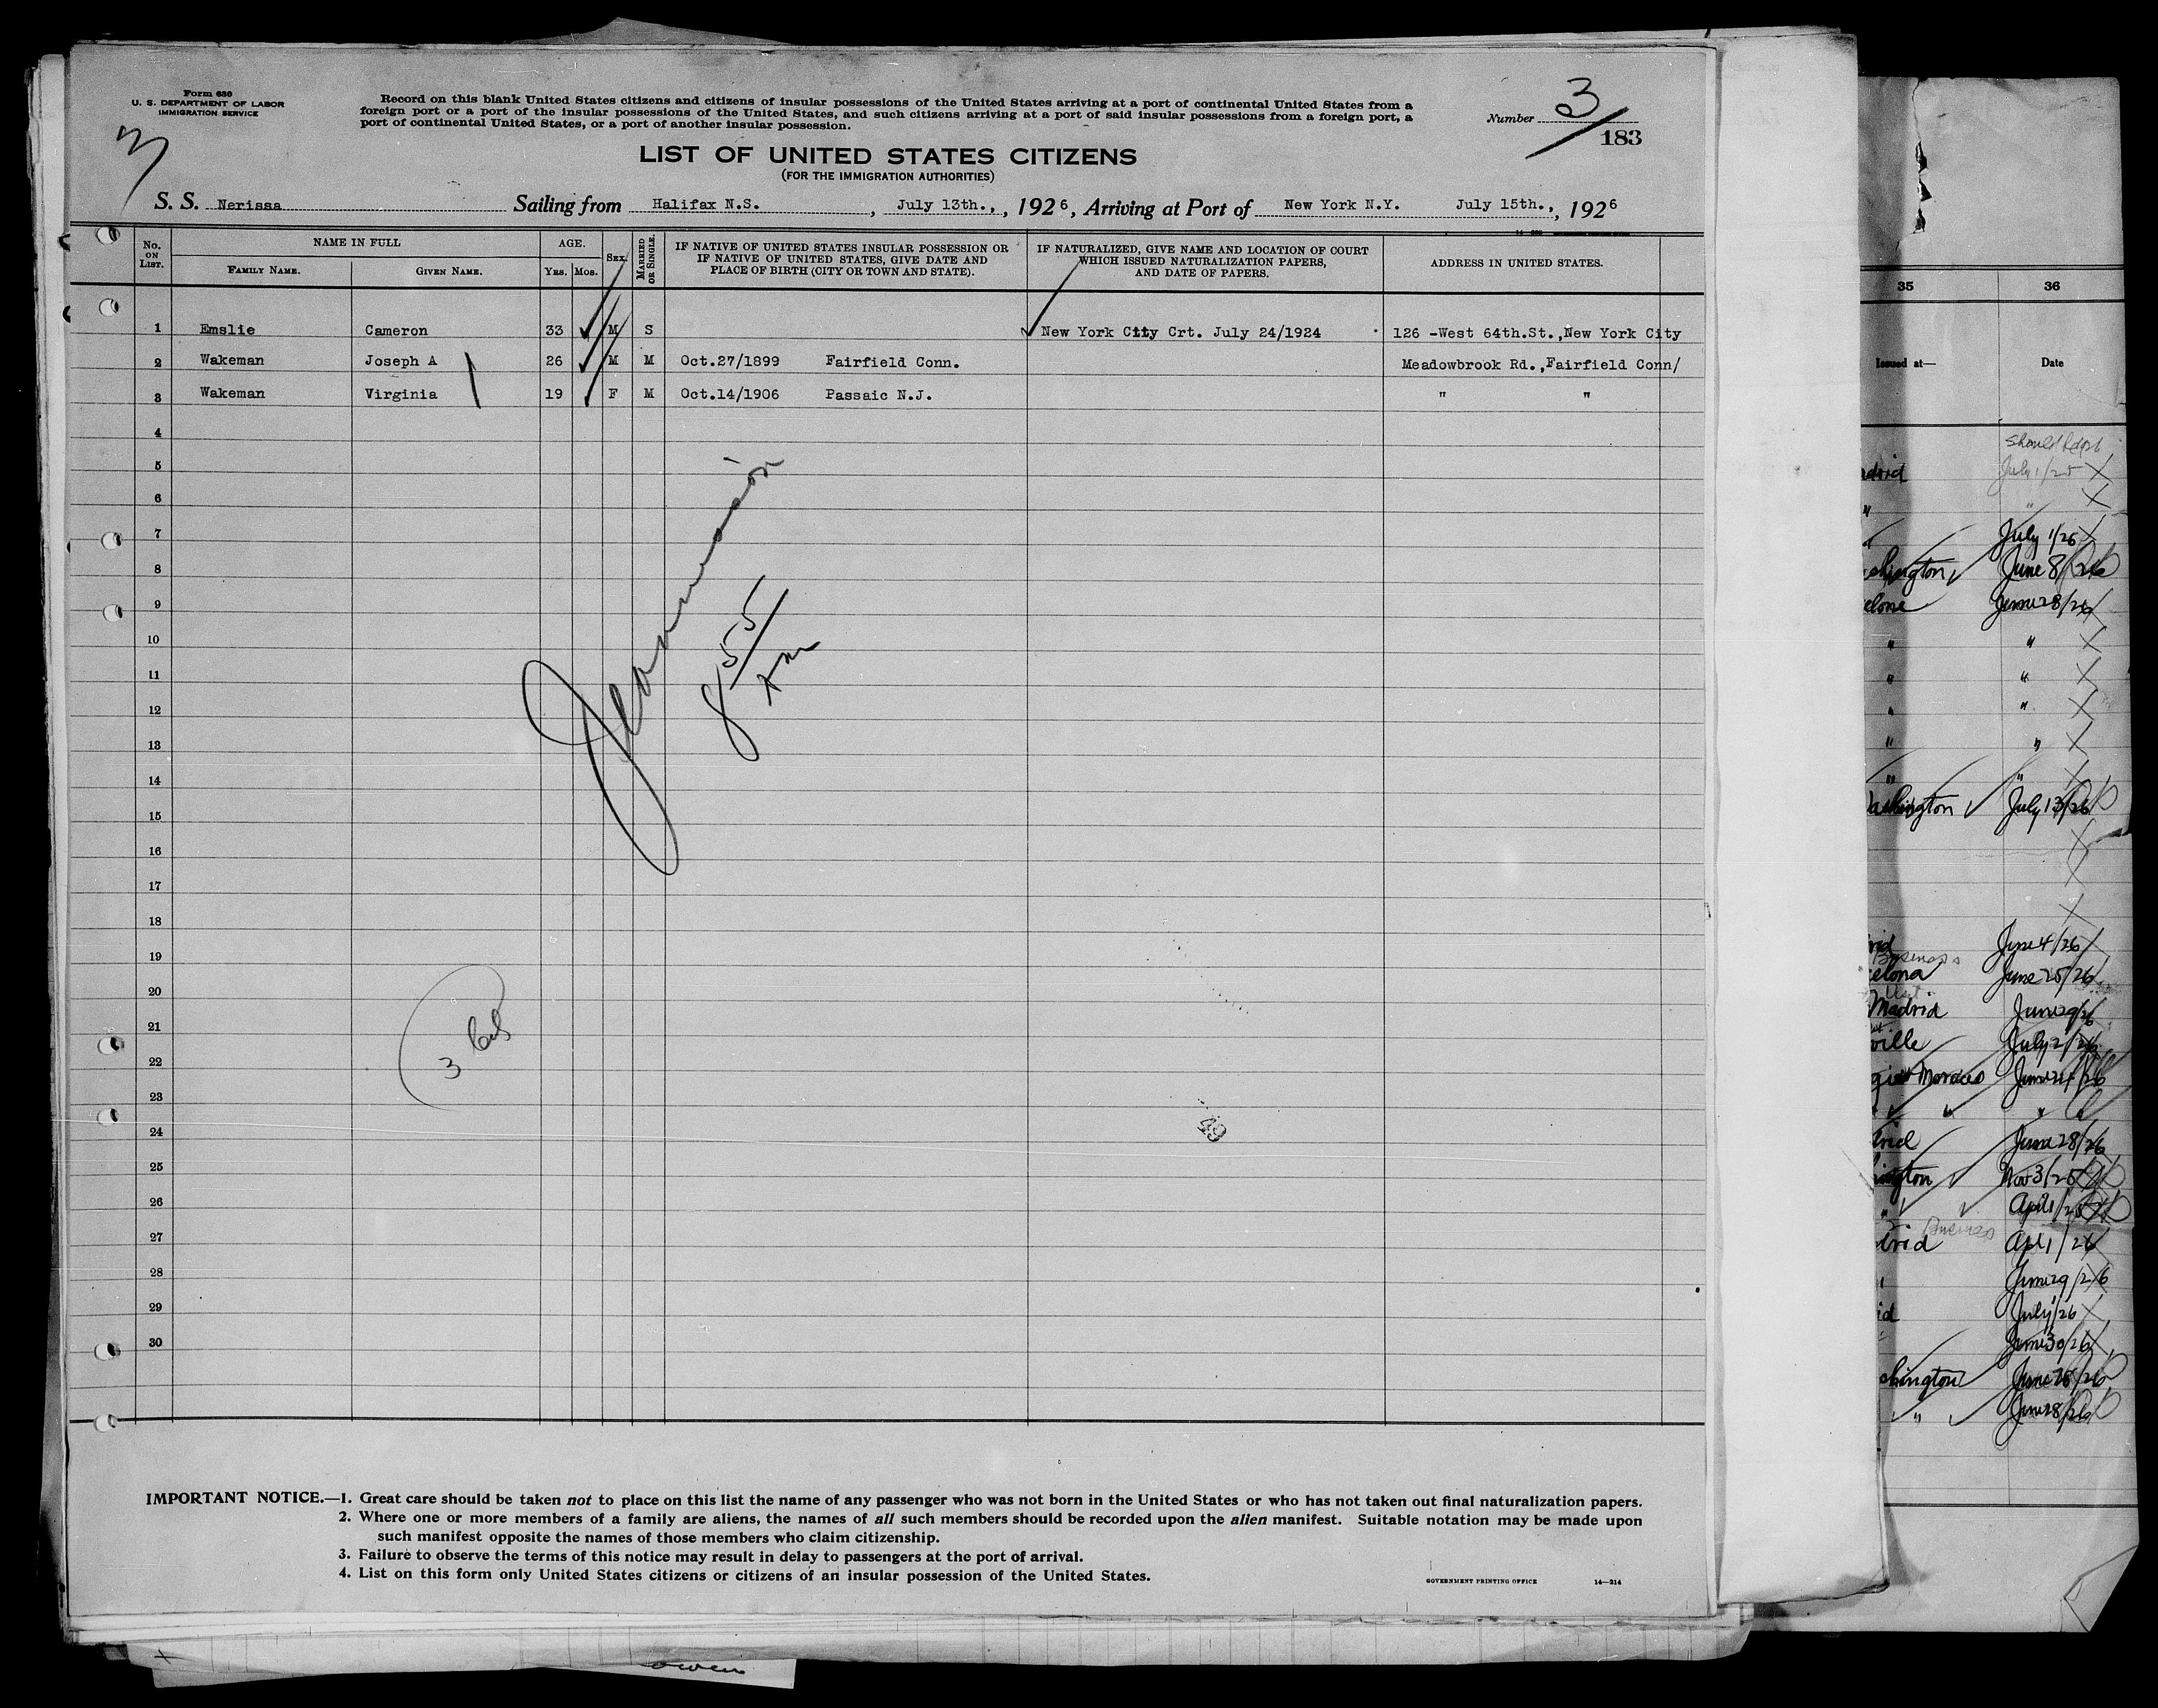 Form 630
U. S. DEPARTMENT OF LABOR
IMMIGRATION SERVICE
3
Record on this blank United States citizens and citizens of insular possessions of the United States arriving at a port of continental United States from a
foreign port or a port of the insular possessions of the United States, and such citizens arriving at a port of said insular possessions from a foreign port, a
port of continental United States, or a port of another insular possession.
Number 3
183
LIST OF UNITED STATES CITIZENS
(FOR THE IMMIGRATION AUTHORITIES)
S. S. Nerissa Sailing from Halifax N.S. , July 13th., , 1926, Arriving at Port of New York N.Y. July 15th., , 1926
No. ON LIST. NAME IN FULL AGE. SEX. MARRIED OR SINGLE. IF NATIVE OF UNITED STATES INSULAR POSSESSION OR IF NATIVE OF UNITED STATES, GIVE DATE AND PLACE OF BIRTH (CITY OR TOWN AND STATE). IF NATURALIZED, GIVE NAME AND LOCATION OF COURT WHICH ISSUED NATURALIZATION PAPERS, AND DATE OF PAPERS. ADDRESS IN UNITED STATES.
FAMILY NAME. GIVEN NAME. YRS. MOS.
1 Emslie Cameron 33 M S New York City Crt. July 24/1924 126 -West 64th.St.,New York City
2 Wakeman Joseph A 26 M M Oct.27/1899 Fairfield Conn. Meadowbrook Rd.,Fairfield Conn/
3 Wakeman Virginia 19 F M Oct.14/1906 Passaic N.J. " "
4
5
6
7
8
9
10
11
12
13
14
15
16
17
18
19
20
21
22
23
24
25
26
27
28
29
30
8 55
AM
3
49
IMPORTANT NOTICE.—1. Great care should be taken not to place on this list the name of any passenger who was not born in the United States or who has not taken out final naturalization papers.
2. Where one or more members of a family are aliens, the names of all such members should be recorded upon the alien manifest. Suitable notation may be made upon
such manifest opposite the names of those members who claim citizenship.
3. Failure to observe the terms of this notice may result in delay to passengers at the port of arrival.
4. List on this form only United States citizens or citizens of an insular possession of the United States.
GOVERNMENT PRINTING OFFICE 14—214
35 36
Issued at— Date
July 1/25
"
July 1/26
June 8/26
June 28/26
" "
" "
" "
" "
" "
July 13/26
June 4/26
June 25/26
Madrid June 29/26
July 2/26
June 24/26
June 28/26
Nov 3/25
Apl 1/26
June 29/26
July 1/26
June 30/26
June 28/26